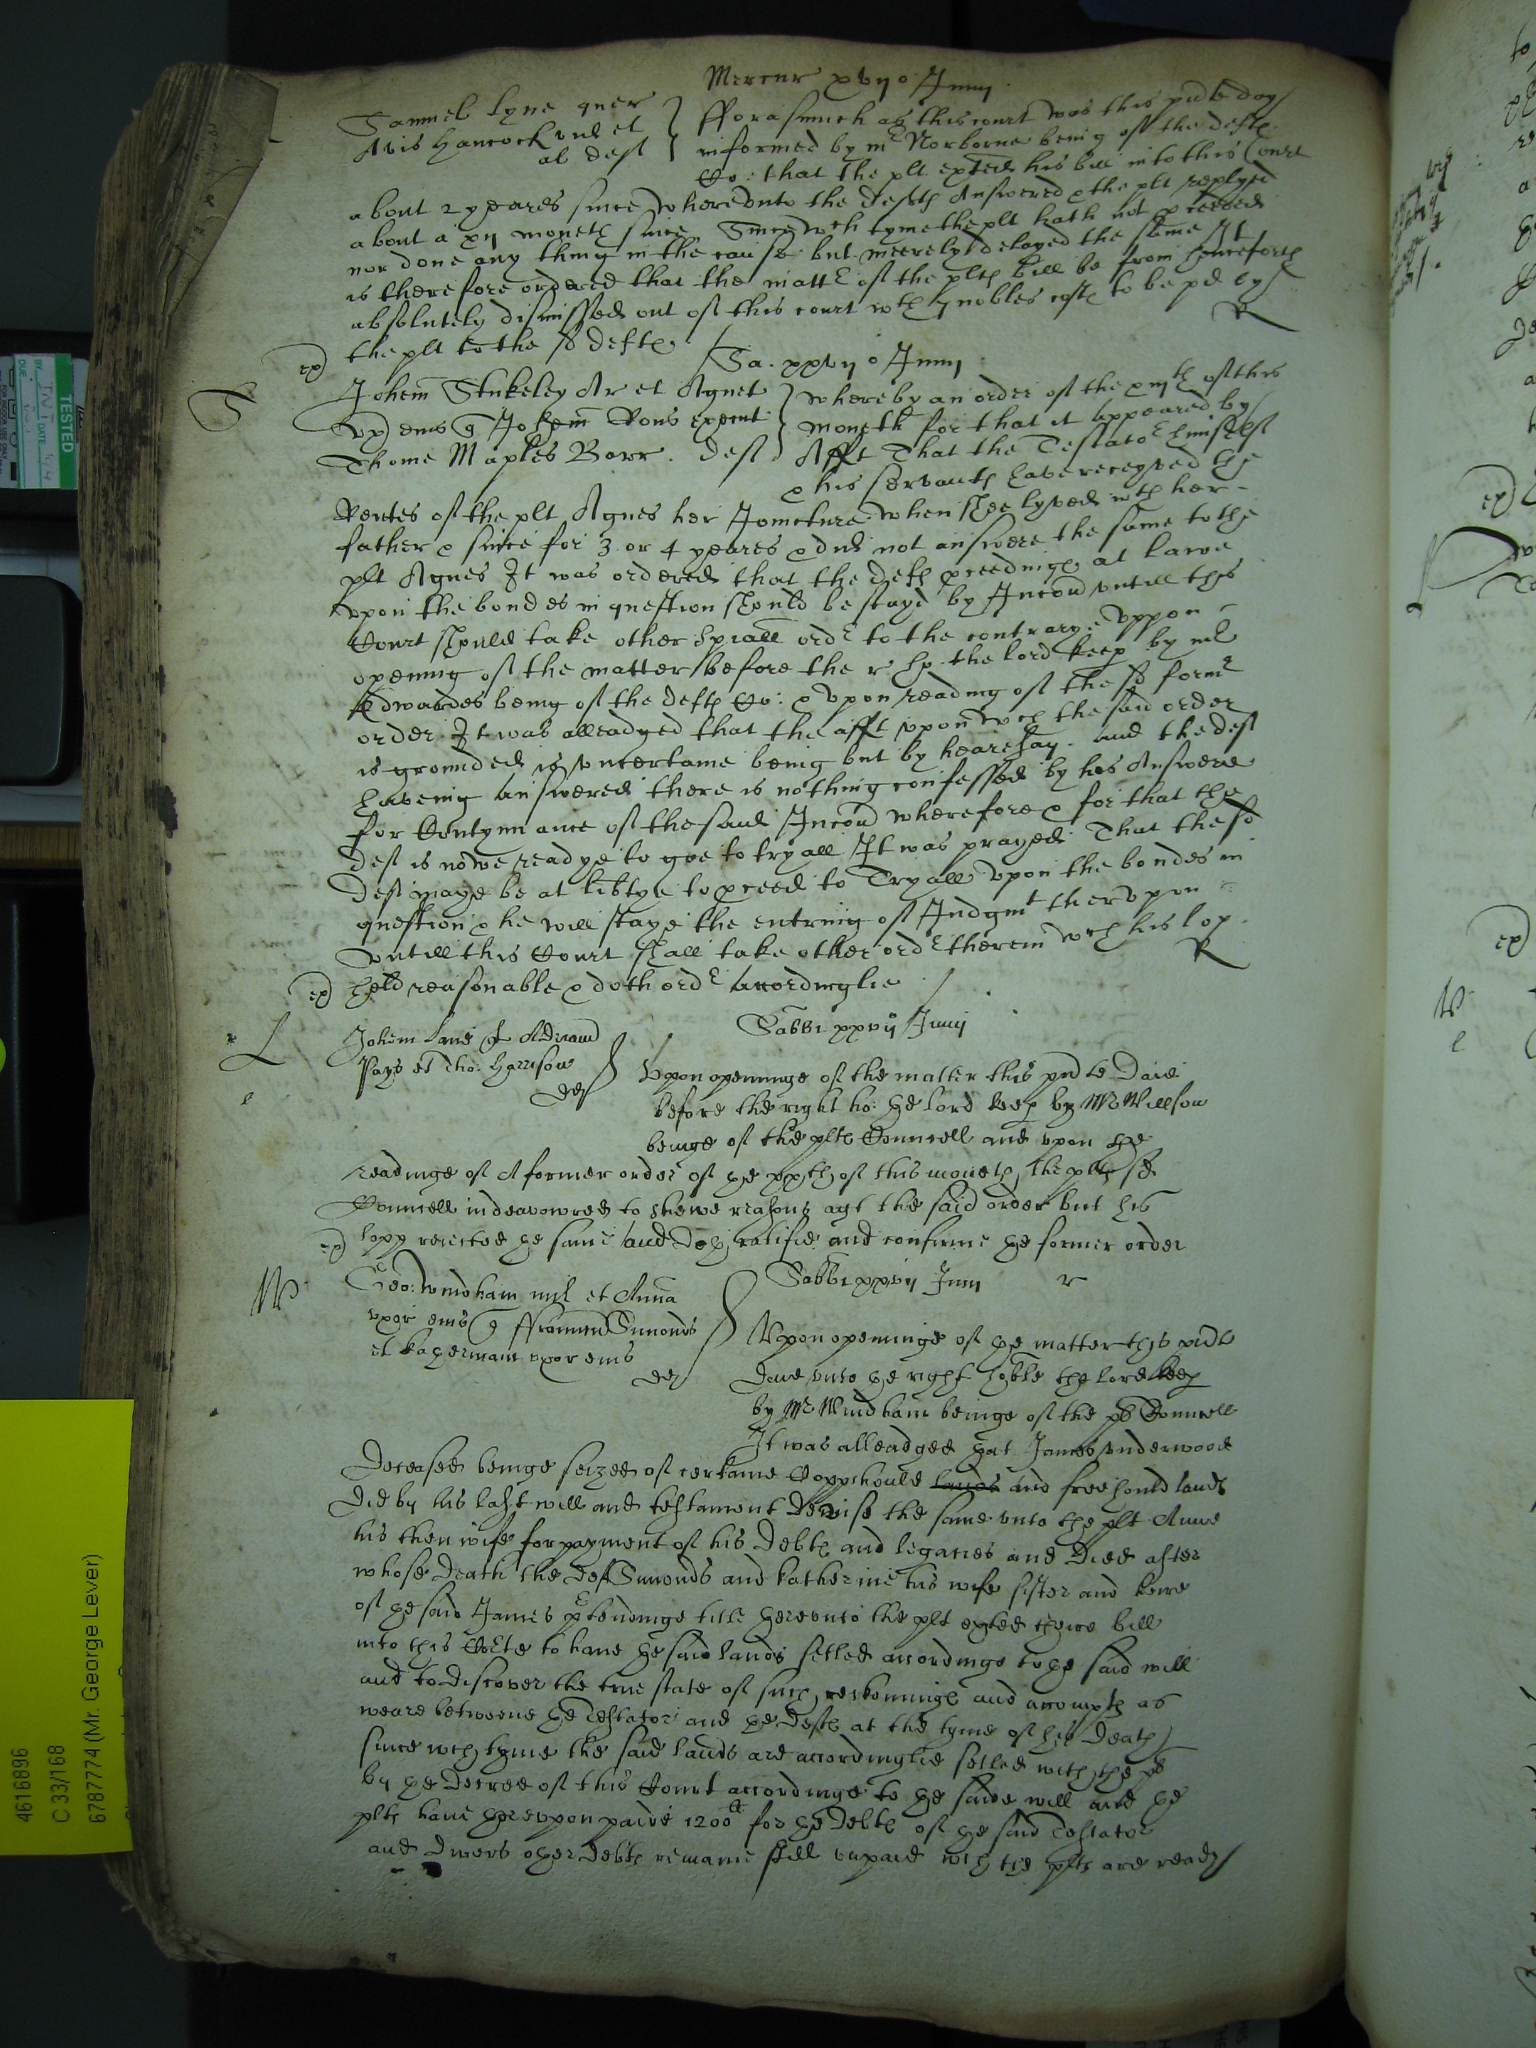 Mercur xvij o Junij
Samuel Lyne quer
Avis Hancock vid et
al deft
fforasmuch as this court was this pnte day
informed by mr Norborne being of the defts
Co: that the plt exhited his bill into this Court
about 2 yeares since whereunto the defts Answered & the plt replyed
about a xij moneth since Since wch tyme the plt hath not pceeded
nor done any thing in the cause but meerely delayed the same It
is therefore ordered that the mattr of the plts bill be from henceforth
absolutely dismissed out of this court wth nobles costs to be pd by
the plt to the sd defts
R
ex
Sa. xxvij o Junij
S
Johem Stukeley Ar et Agnet
vx eius q Johem Rous execut
Thome Maples Barr. deft
whereby an order of the xiijth of this
moneth for that it Appeared by
Afft That the Testator himself
& his servants have receyved the
Rentes of the plt Agnes her Joincture when shee lyved wth her
father & since for 3 or 4 yeares & did not answere the same to the
plt Agnes It was ordered that the defts pceedings at lawe
vpon the bondes in question should be stayd by Incon untill this
Court should take other spiall ordr to the contrarye vppon
opening of the matter before the r hp the lord keep by mr
Edwardes being of the defts Co: & vpon reading of the sd formr
order It was alleadged that the afft vpon wch the said order
is grounded is vncertaine being but by hearesay and the deft
haveing answered there is nothing confessed by his Answere
for Contynuance of the said Incon wherefore & for that the
deft is nowe readye to goe to tryall It was prayed That the sd
deft maye be at libtye to pceed to Tryall vpon the bondes in
question & he will staye the entring of Judgmt thervpon
untill this Court shall take other ordr therein wch his lop
held reasonable & doth ordr accordinglie
R
ex
Sabbi xxvij Junij
L
Johem Lane q Adriand
Pays et Tho: Harrison
def
Vpon openinge of the matter this pnte Daie
before the right ho: the lord keep by Mr Willson
beinge of the plts Councell and vpon the
readinge of A former order of the xxth of this moneth, the plts sd
Councell indeavowred to shewe reasons agt the said order but his
lopp reiected the same and doth ratifie and confirme the former order
ex
Sabbi xxvij Junij
r
W
Geo: Windham mil et Anna
vxor eius q ffranncu Simonds
et katherinam vxor eius
def
Vpon openinge of the matter this pnte
Daie vnto the right hoble the lord keep
by Mr Windham beinge of the pl Councell
It was alleadged that James vnderwood
Deceased beinge seized of certaine Coppihould lands and freehould lands
Did by his last will and testament Devise the same vnto the plt Anne
his then wife for payment of his Debts and legacies and Died after
whose Death the Deft Simonds and katherine his wife sister and heire
of the said James ptendinge title therevnto the plt exhited theire bill
into this Corte to have the said lands setled accordinge to the said will
and to discover the true state of such reckonninge and accompts as
weare betweene the Testator and the Defts at the tyme of his Death
since wch tyme the said lands are accordinglie setled with the pl
by the Decree of this Court accordinge to the saide will and the
plts have therevpon paide 1200li for the Debts of the said Testator
and divers other Debts remaine still vnpaid wch the plts are ready
TESTED
4616896
C 33/168
6787774 (Mr. George Lever)